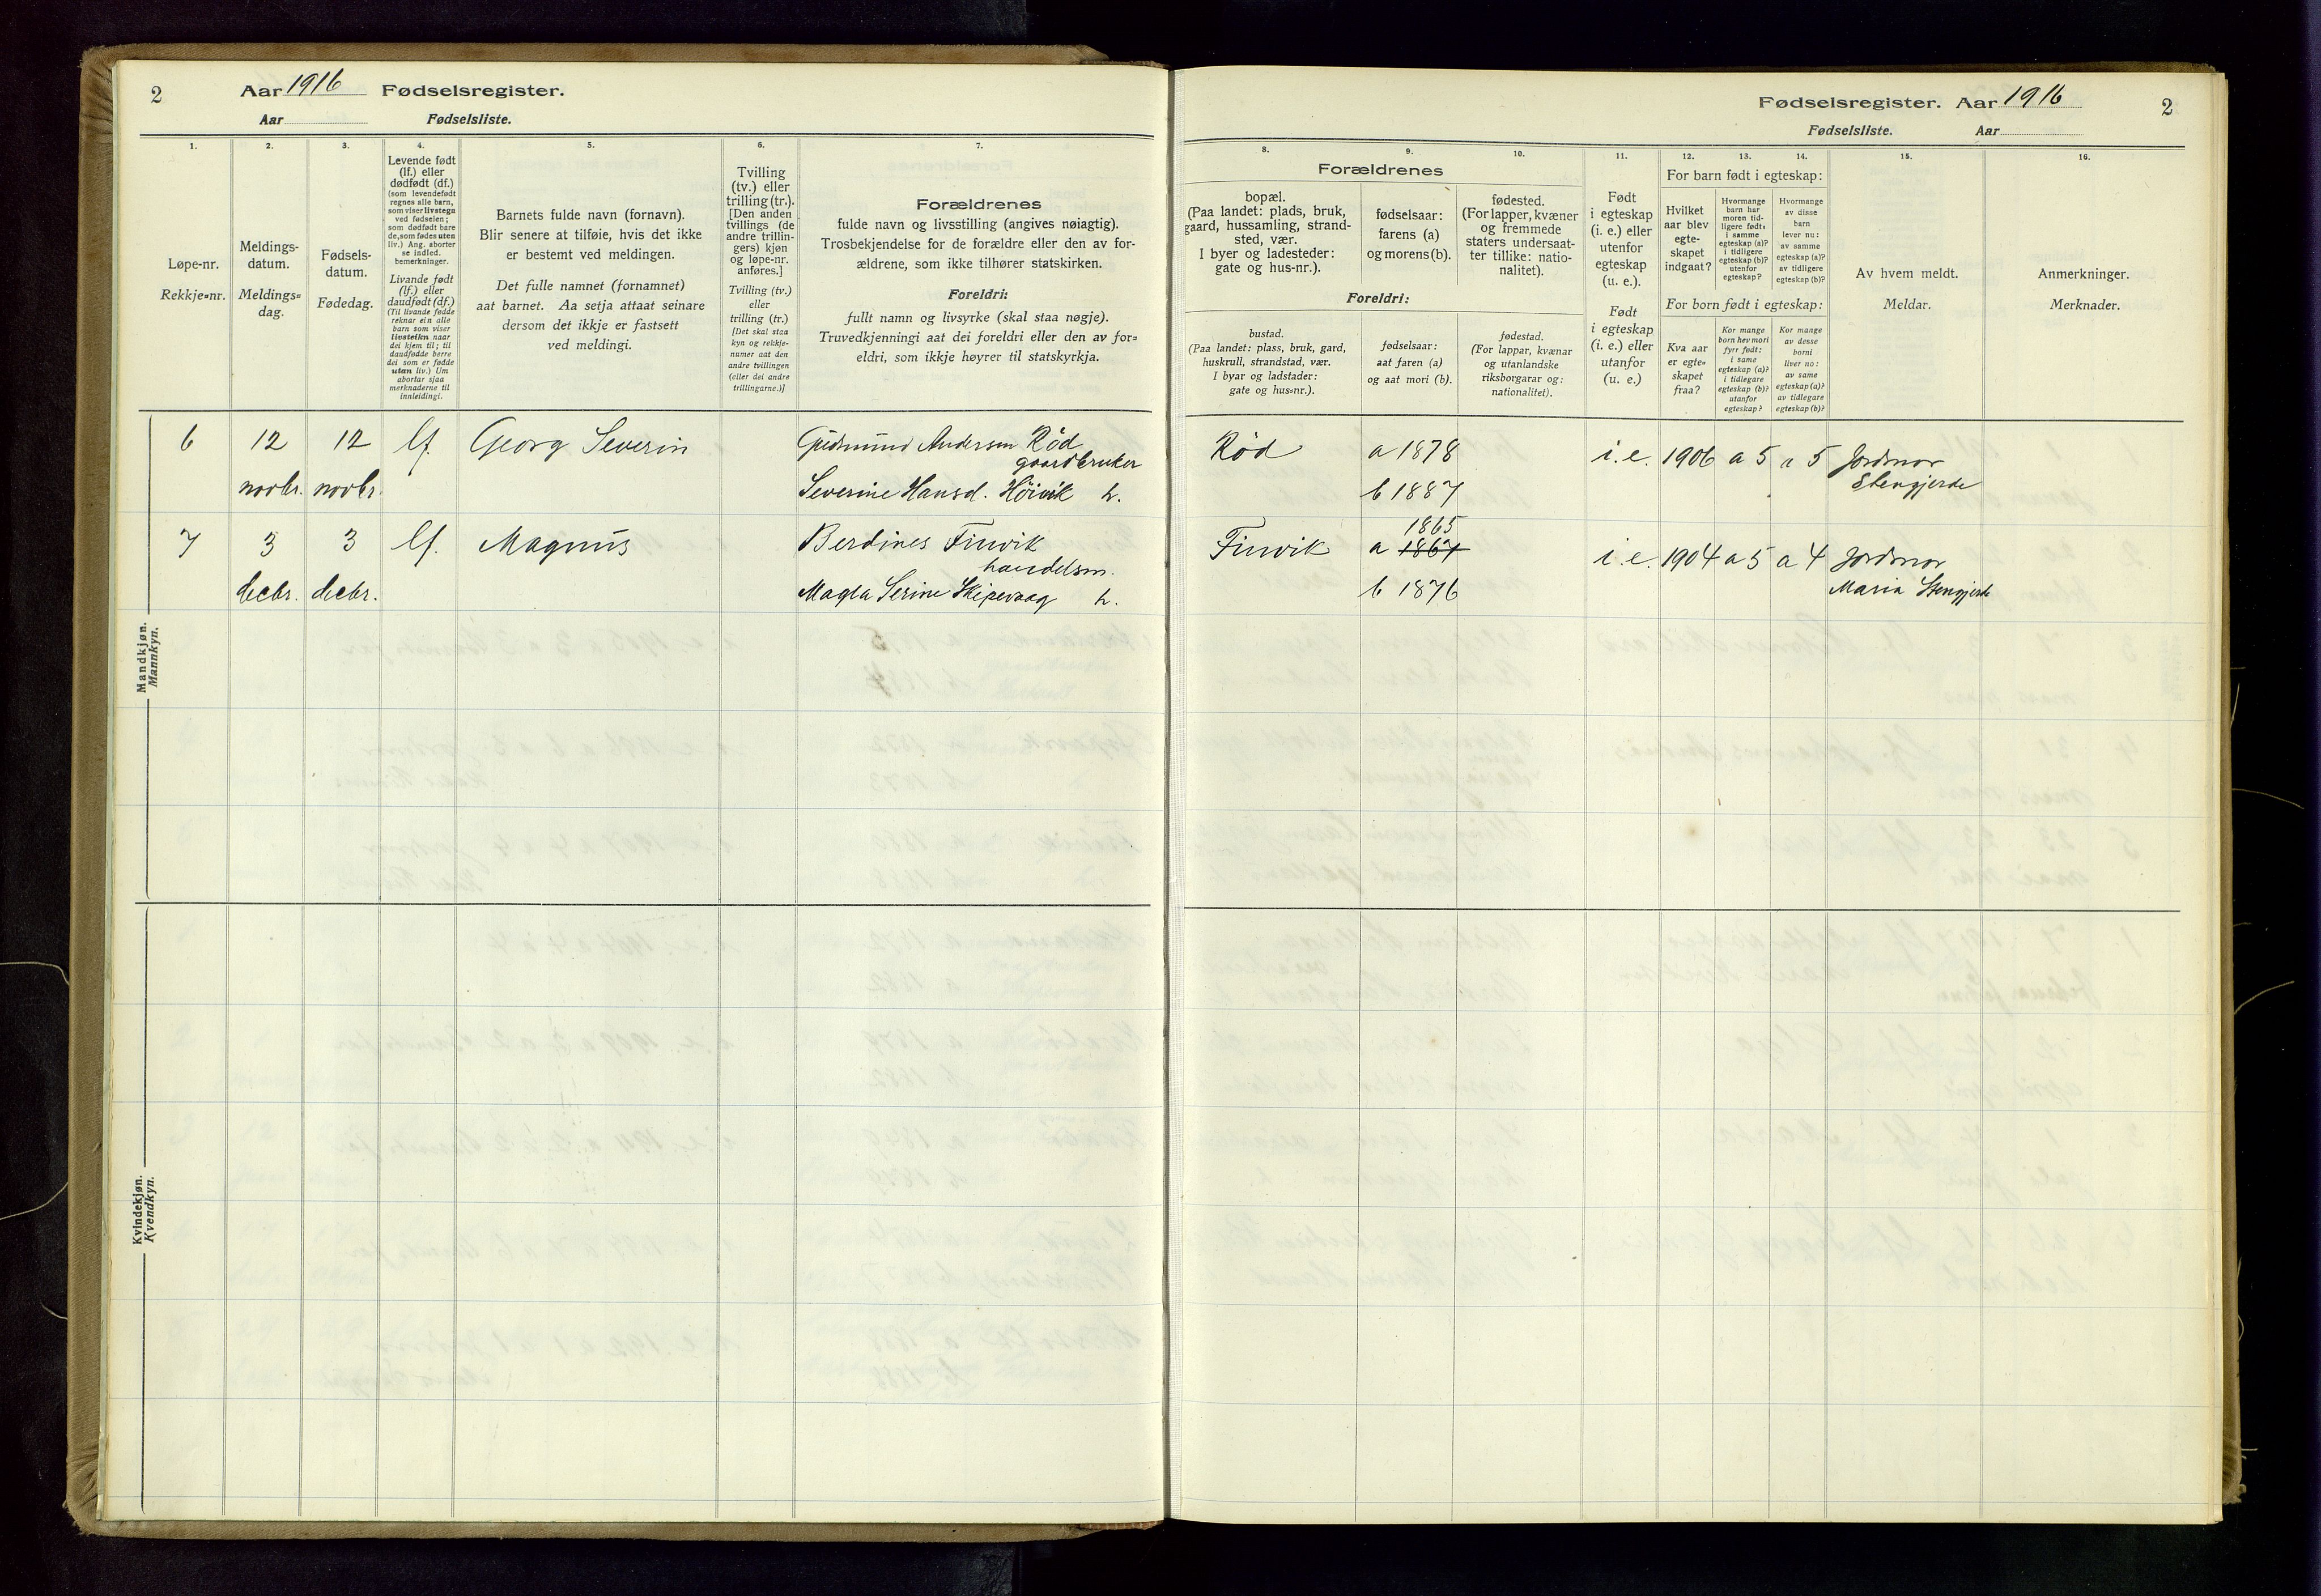 2 Aar 1916 Fødselsregister.
Aar Fødselsliste.
1. 2. 3. 4. 5. 6. 7.
Løpe-nr.
Rekkje=nr.
Meldings-
datum.
Meldings=
dag.
Fødsels-
datum.
Fødedag.
Levende født
(lf.) eller
dødfødt (df.)
(som levendefødt
regnes alle barn,
som viser livstegn
ved fødselen;
som dødfødt bare
de, som fødes uten
liv.) Ang. aborter
se indled.
bemerkninger.
Livande født
(lf.) eller
daudfødt (df.)
(Til livande fødde
reknar ein alle
barn som viser
livsteikn naar
dei kjem til; til
daudfødde berre
dei som er fødde
utan liv.) Um
abortar sjaa
merknaderne til
innleidingi.
Barnets fulde navn (fornavn).
Blir senere at tilføie, hvis det ikke
er bestemt ved meldingen.
Det fulle namnet (fornamnet)
aat barnet. Aa setja attaat seinare
dersom det ikkje er fastsett
ved meldingi.
Tvilling
(tv.) eller
trilling (tr.).
[Den anden
tvillings (de
andre trillin-
gers) kjøn
og løpe-nr.
anføres.]
Tvilling (tv.)
eller
trilling (tr.)
[Det skal staa
kyn og rekkje-
numer aat den
andre tvillingen
(eller dei andre
trillingarne.)]
Forældrenes
fulde navn og livsstilling (angives nøiagtig).
Trosbekjendelse for de forældre eller den av for-
ældrene, som ikke tilhører statskirken.
Foreldri:
fullt namn og livsyrke (skal staa nøgje).
Truvedkjenningi aat dei foreldri eller den av for=
eldri, som ikkje høyrer til statskyrkja.
6 12 12 lf. Georg Severin Gudmund Andersen Rød
gaardbruker
novbr. novbr. Severine Hansd. Høivik h.
7 3 3 lf. Magnus Berdines Finvik
handelsm.
decbr. decbr. Magla Serine Skipevaag h.
Mandkjøn.
Mannkyn.
Kvindekjøn.
Kvendkyn.
Fødselsregister. Aar 1916 2
Fødselsliste. Aar
8. 9. 10. 11. 12. 13. 14. 15. 16.
Forældrenes
bopæl.
(Paa landet: plads, bruk,
gaard, hussamling, strand-
sted, vær.
I byer og ladesteder:
gate og hus-nr.).
fødselsaar:
farens (a)
og morens (b).
fødested.
(For lapper, kvæner
og fremmede
staters undersaat-
ter tillike: natio-
nalitet).
Foreldri:
bustad.
(Paa landet: plass, bruk, gard,
huskrull, strandstad, vær.
I byar og ladstader:
gate og hus=nr.).
fødselsaar:
aat faren (a)
og aat mori (b).
fødestad.
(For lappar, kvænar
og utanlandske
riksborgarar og:
nationalitet).
Født
i egteskap
(i. e.) eller
utenfor
egteskap
(u. e.).
Født
i egteskap
(i. e.) eller
utanfor
(u. e.)
For barn født i egteskap:
Hvilket
aar blev
egte-
skapet
indgaat?
Hvormange
barn har
moren tid-
ligere født:
i samme
egteskap (a)?
i tidligere
egteskap (b)?
utenfor
egteskap?
Hvormange
av disse
barn
lever nu:
av samme
egteskap (a)?
av tidligere
egteskap (b)?
For born født i egteskap:
Kva aar
er egte=
skapet
fraa?
Kor mange
born hev mori
fyrr født:
i same
egteskap (a)?
i tidlegare
egteskap (b)?
utanfor
egteskap?
Kor mange
av desse
borni
liver no:
av same
egteskap (a)?
av tidlegare
egteskap (b)?
Av hvem meldt.
Meldar.
Anmerkninger.
Merknader.
Rød a 1878 i. e. 1906 a 5 a 5 Jordmor
b 1887 Stengjerde
1865
Finvik a 1867 i. e. 1904 a 5 a 4 Jordmor
b 1876 Maria Stengjerde